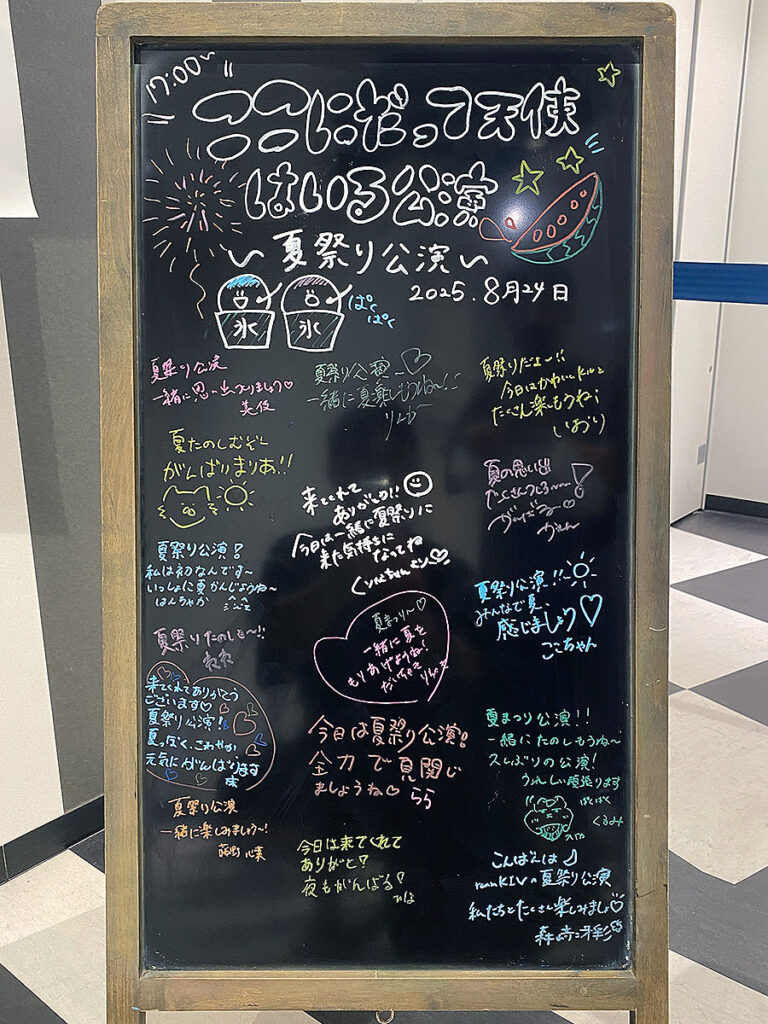 17:00~
ここにだって天使
はいる公演
~夏祭り公演~
2025.8月24日
氷
氷
ぱく
ぱく
夏祭り公演
一緒に思い出つくりましょう♡
夏祭り公演
夏祭りだよー!!
今日はかわいい
たくさん楽しもうね!
いおり
夏たのしむぞー
がんばりまりあ!!
夏の思い出
来てくれて
ありがとう!!
今日は一緒に夏祭りに
来た気持ちに
なってね
夏祭り公演!
私は初なんです~
いっしょに夏かんじようね~
夏祭り公演!!
みんなで夏、
感じましょう♡
ここちゃん
夏祭りたのしも~!!
夏まつり~♡
一緒に夏を
もりあげようね!
来てくれてありがとう
ございます♡
夏祭り公演!
夏っぽく、さわやか
元気にがんばります
今日は夏祭り公演!
全力で
ましょうね♡ らら
夏まつり公演!!
一緒にたのしもうね~
久しぶりの公演!
うれしい 頑張ります
ぱくぱく
くるみ
夏祭り公演
一緒に楽しみましょう~!
藤野 心葉
今日は来てくれて
ありがと!
夜もがんばる!
こんばんは
夏祭り公演
私たちとたくさん楽しみましょ♡